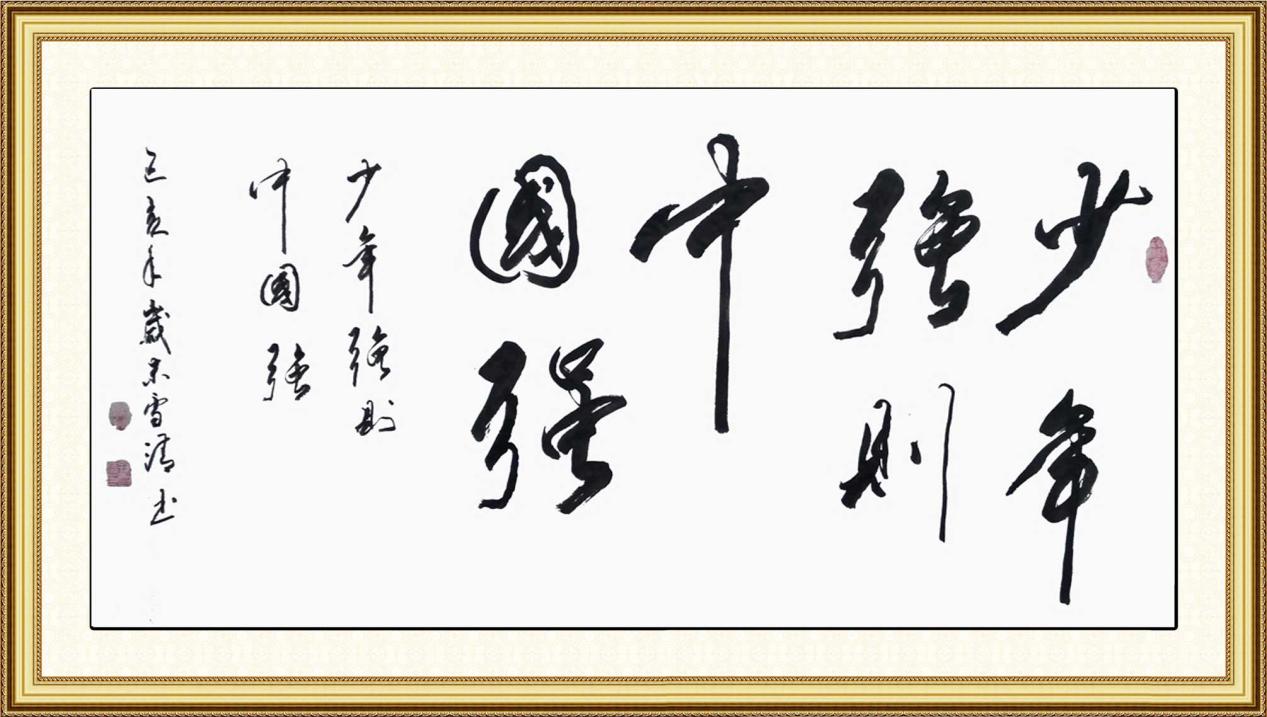 少年
強則
中
國強
少年強則
中國強
己亥年歲末雪清书